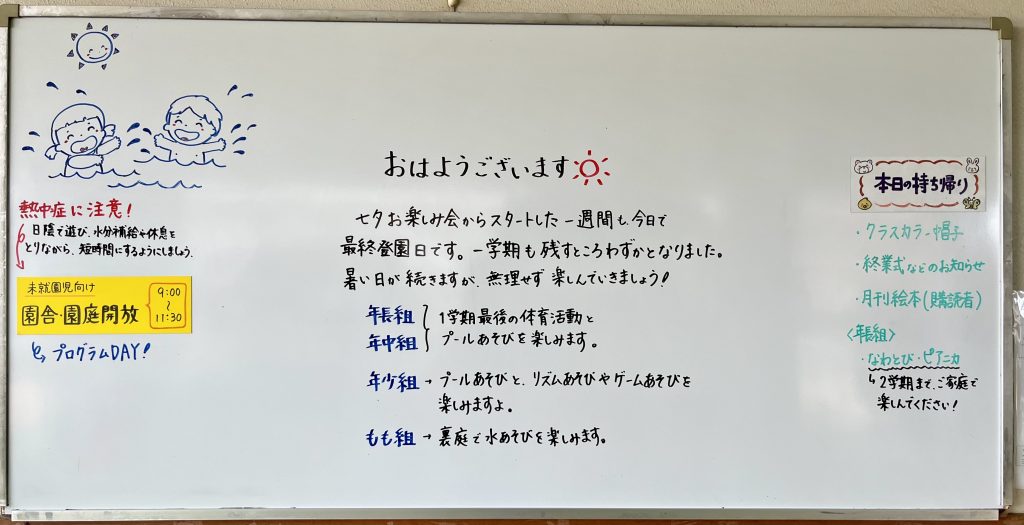 熱中症に注意！
日陰で遊び、水分補給や休息を
とりながら、短時間にするようにしましょう。
未就園児向け
園舎・園庭開放
9:00
〜
11:30
プログラムDAY！
おはようございます
七夕お楽しみ会からスタートした一週間も、今日で
最終登園日です。一学期も残すところわずかとなりました。
暑い日が続きますが、無理せず楽しんでいきましょう！
年長組
年中組
1学期最後の体育活動と
プールあそびを楽しみます。
年少組→プールあそびと、リズムあそびやゲームあそびを
楽しみますよ。
もも組→裏庭で水あそびを楽しみます。
本日の持ち帰り
・クラスカラー帽子
・終業式などのお知らせ
・月刊絵本(購読者)
〈年長組〉
・なわとび・ピアニカ
↳2学期まで、ご家庭で
楽しんでください！